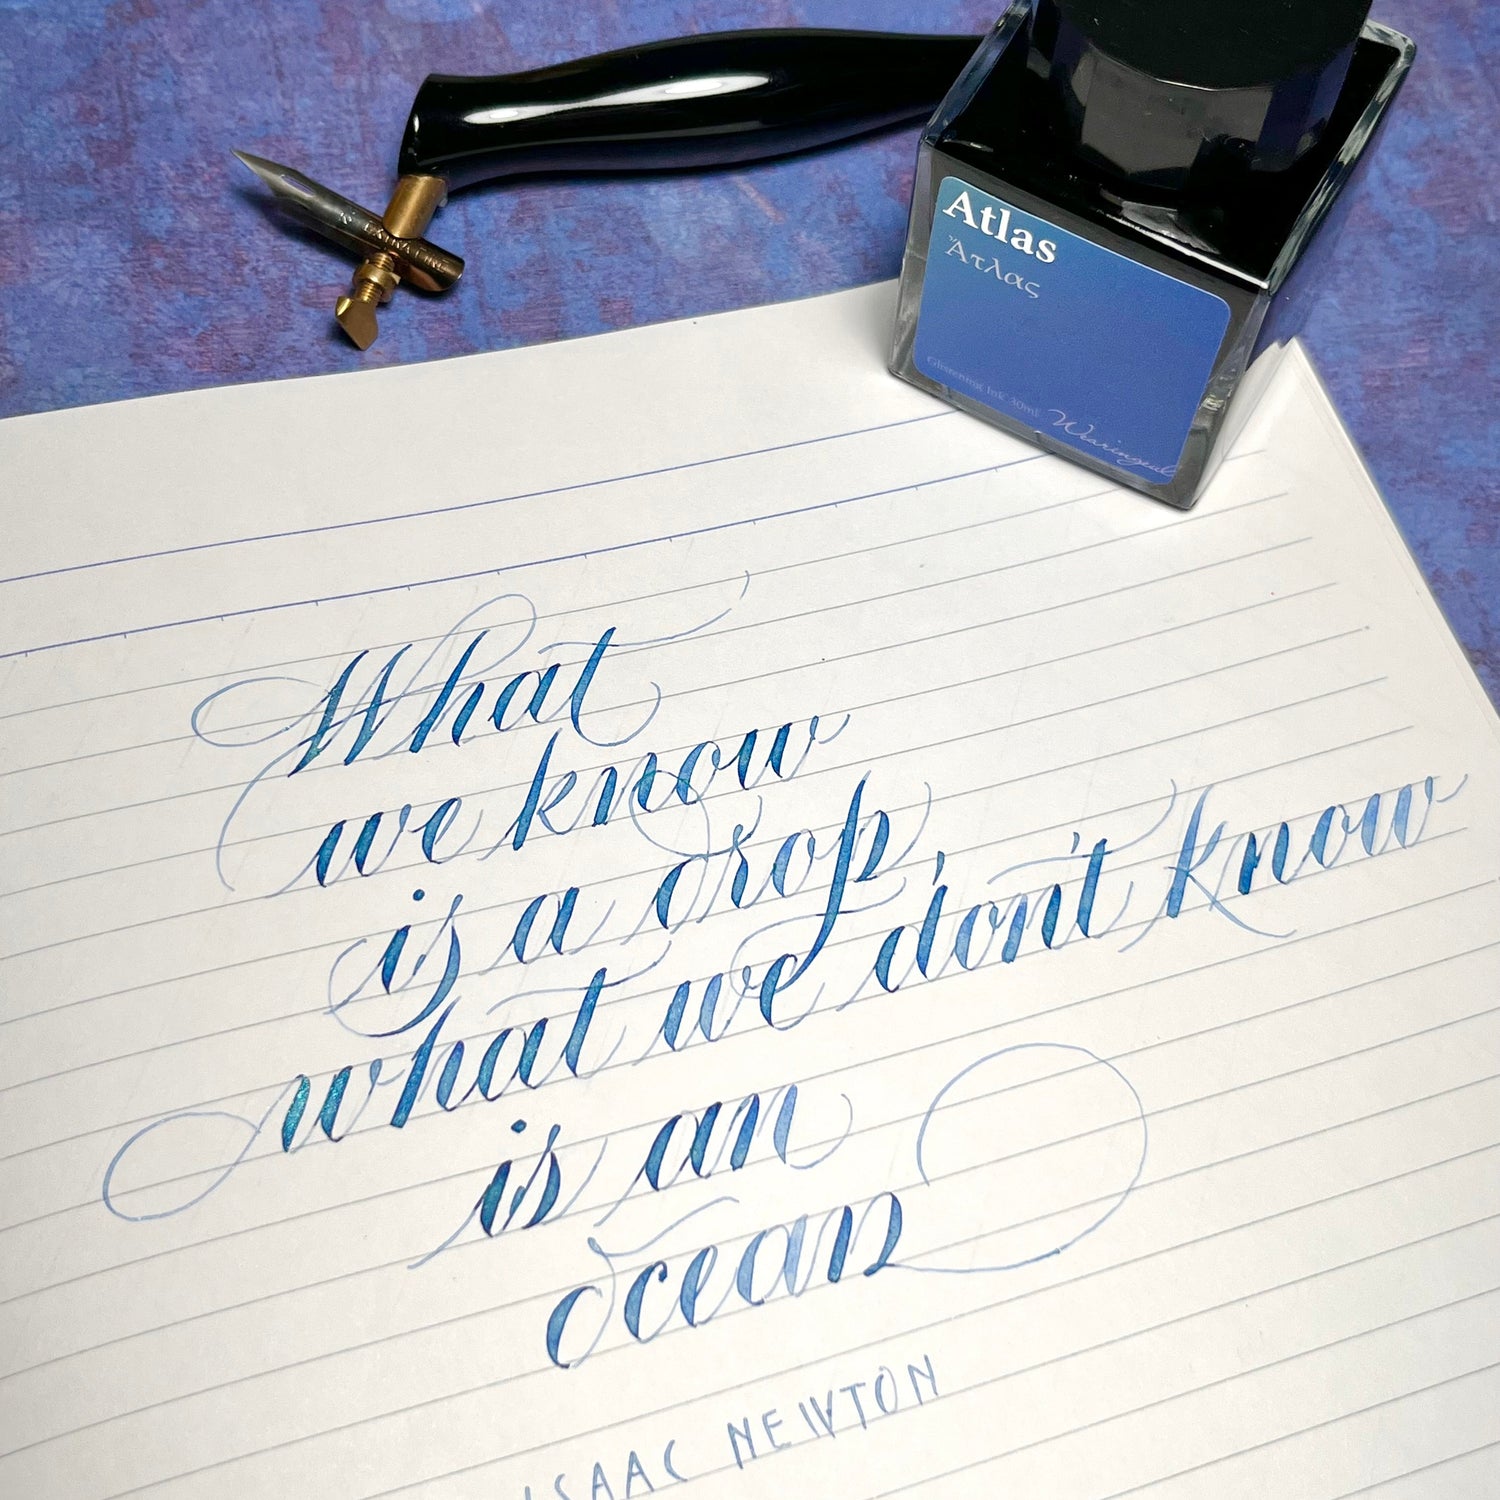 EXTRA FINE
Atlas
Ἄτλας
Glistening Ink 30ml
Wearingeul
What
we know
is a drop,
what we don't know
is an
ocean
ISAAC NEWTON